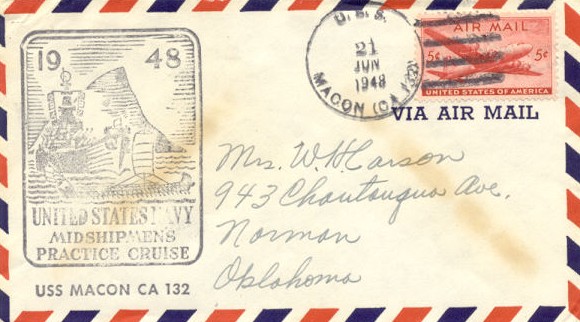 19 48
UNITED STATES NAVY
MIDSHIPMENS
PRACTICE CRUISE
USS MACON CA 132
U.S.S.
21
JUN
1948
MACON (CA 132)
AIR MAIL
5¢ 5¢
UNITED STATES OF AMERICA
VIA AIR MAIL
Mrs. W. H. Carson
943 Chautauqua Ave.
Norman
Oklahoma